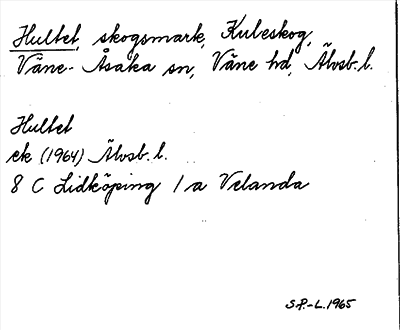 Hultet, skogsmark, Kubeskog,
Väne-Åsaka sn, Väne hd, Älvsb. l.
Hultet
ek (1964) Älvsb. l.
8 C Lidköping 1 a Velanda
S.P.-L. 1965